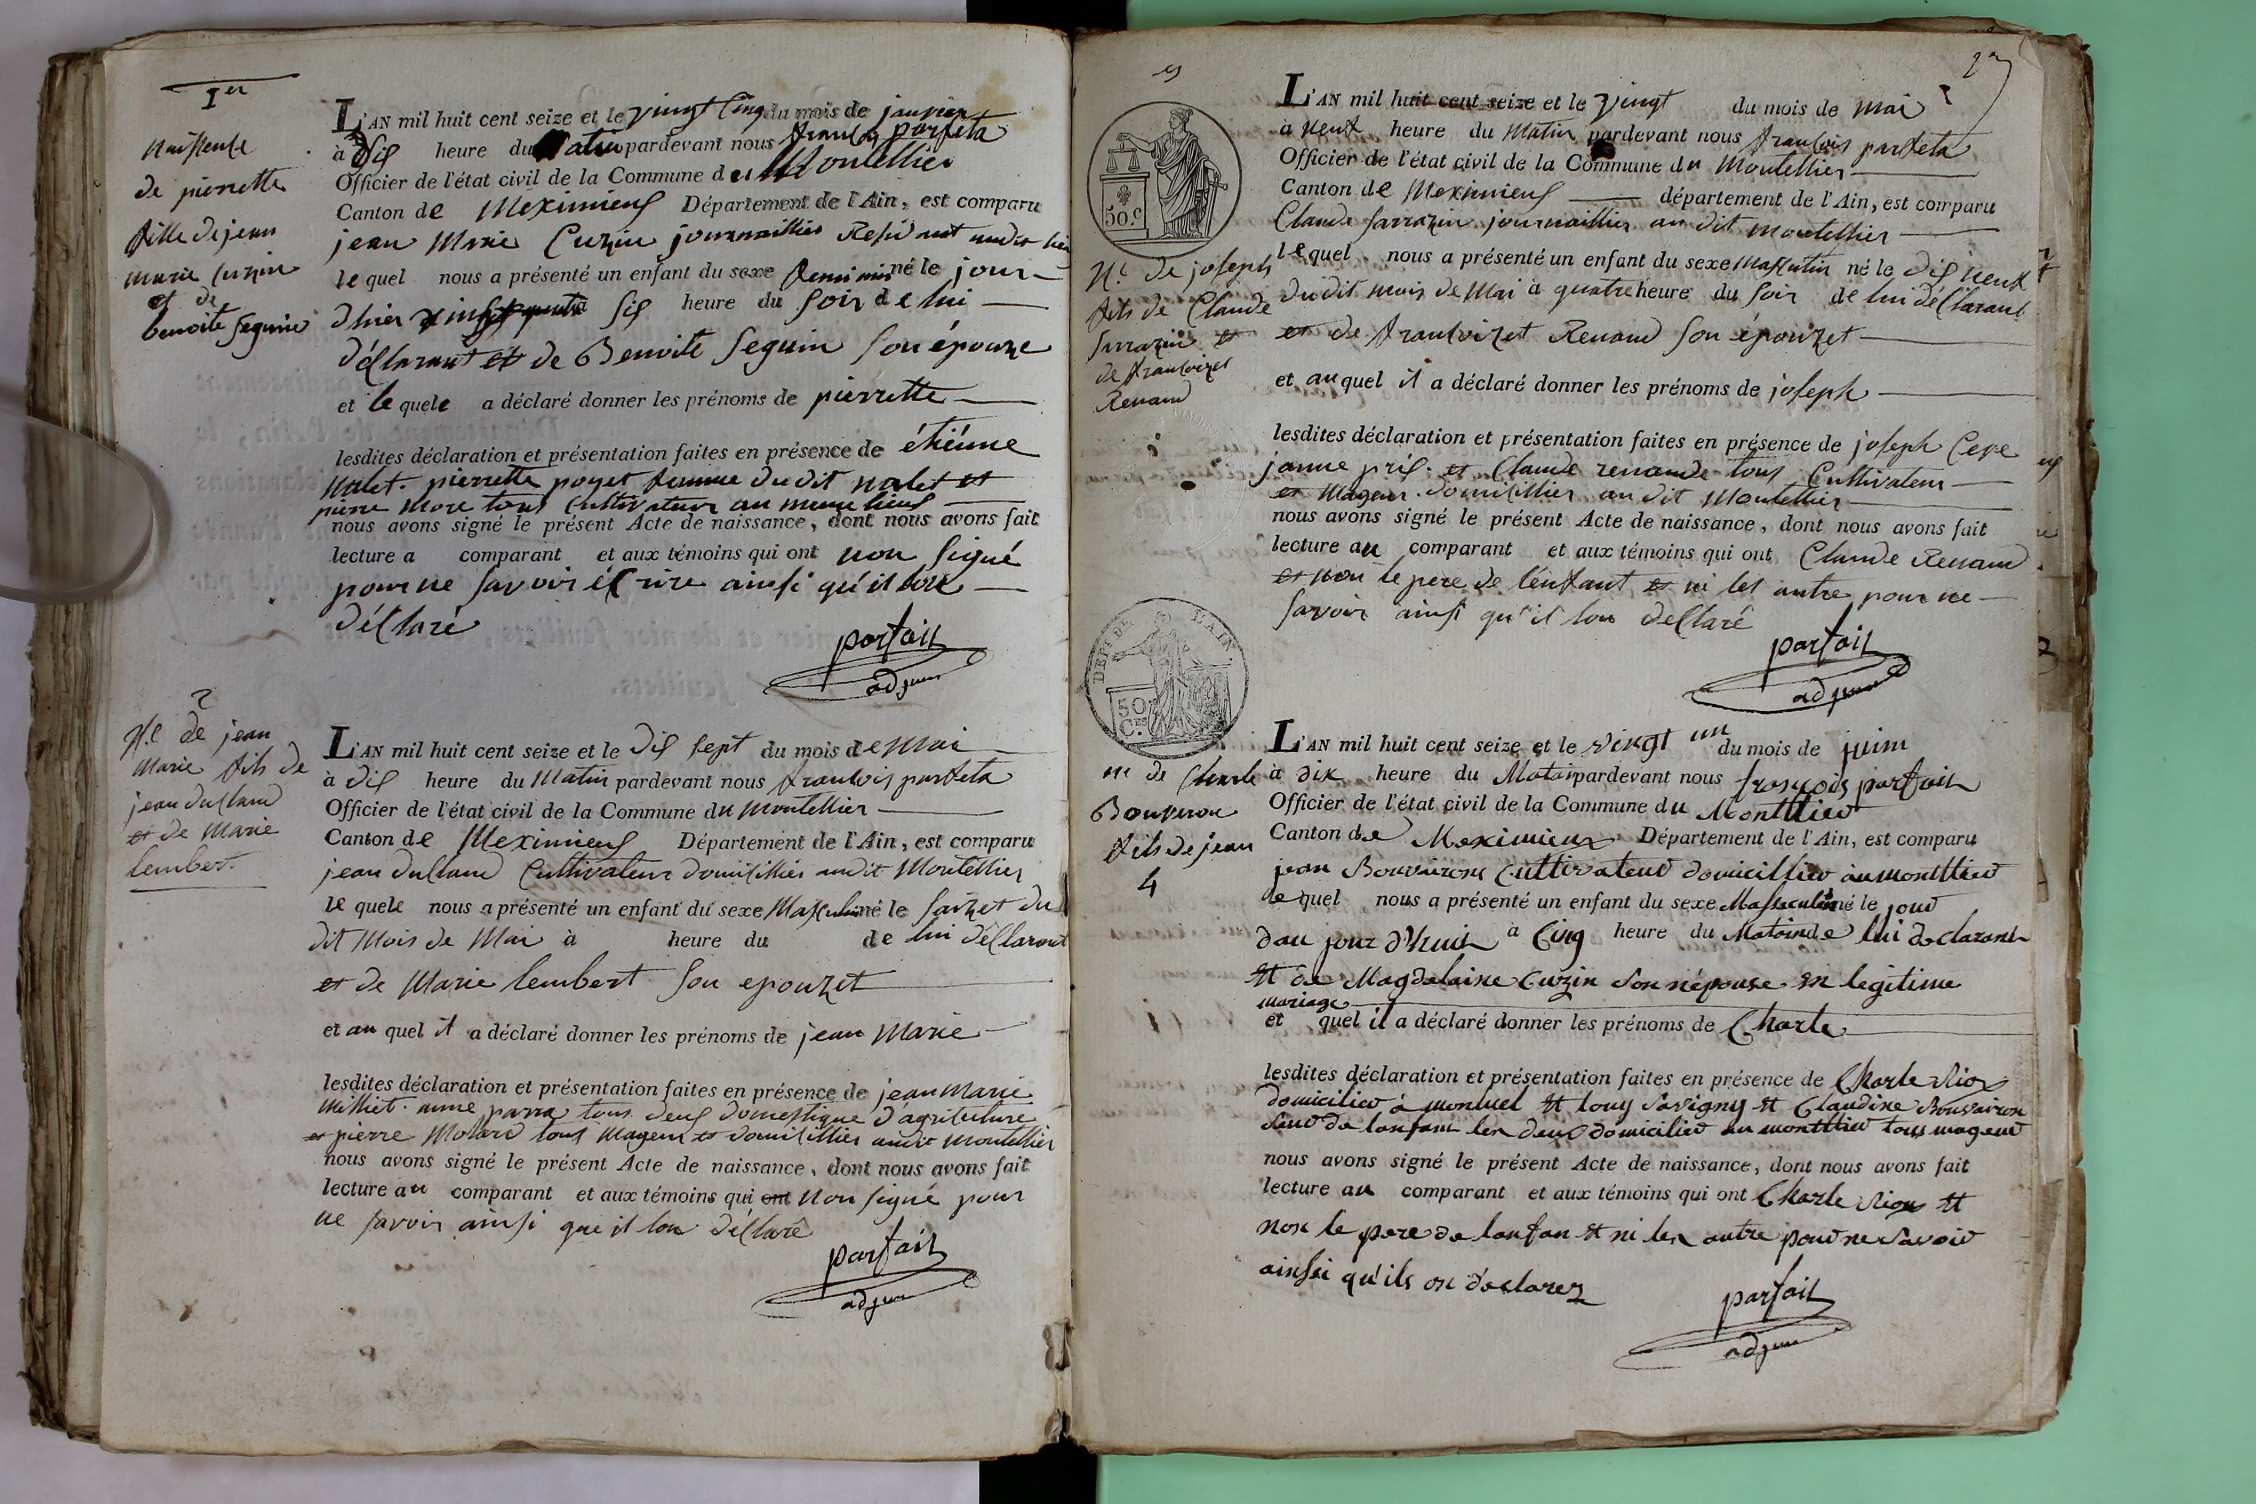 1er
Naissence
de pierrette
fille de jean
marie Cuzin
et de
benoite Seguin
L'AN mil huit cent seize et le vingt Cinq du mois de janvier
à Dis heure du matin pardevant nous francois parfeta
Officier de l'état civil de la Commune du Montellier
Canton de Meximieus Département de l'Ain, est comparu
jean Marie Cuzin journaillier Residant audit lieu
le quel nous a présenté un enfant du sexe feminin né le jour
dhier à sis heure du soir de lui
déclarant et de Benoite Seguin son épouze
et le quele a déclaré donner les prénoms de pierrette
lesdites déclaration et présentation faites en présence de étiénne
nalet. pierrette poyet femme dudit nalet et
pierre More tous Cultivateur au meme lieus
nous avons signé le présent Acte de naissance, dont nous avons fait
lecture a comparant et aux témoins qui ont non signé
pour ne savoir éCrire ainsi qu'il lon
déClaré
parfait
adjoin
2
N.e de jean
marie fils de
jean duclaud
et de Marie
lembert.
L'AN mil huit cent seize et le Dis sept du mois de Mai
à Dis heure du Matin pardevant nous francois parfeta
Officier de l'état civil de la Commune du Montellier
Canton de Meximieus Département de l'Ain, est comparu
jean duclaud Cultivateur domicillier audit Montellier
le quele nous a présenté un enfant du sexe Masculin né le saizet du
dit Mois de Mai à heure du de lui déClarant
et de Marie lembert son epouzet
et au quel il a déclaré donner les prénoms de jean Marie
lesdites déclaration et présentation faites en présence de jean Marie
Milliet. anne parra tous deus domestique d'agriculture
et pierre Molard tous Mageur et domicillier audit Montellier
nous avons signé le présent Acte de naissance, dont nous avons fait
lecture au comparant et aux témoins qui ont Non signé pour
ne savoir ainsi que il lon déClaré
parfait
adjoin
27
50.c
3
N.e de joseph
fils de Claude
Sarrazin et
de francoizet
Renaud
L'AN mil huit cent seize et le vingt du mois de mai
à neuf heure du Matin pardevant nous francois parfeta
Officier de l'état civil de la Commune du Montellier
Canton de Meximieus département de l'Ain, est comparu
Claude Sarrazin journaillier au dit montellier
lequel nous a présenté un enfant du sexe Masculin né le dis neuf
dudit mois de Mai à quatre heure du soir de lui déClarant
et de francoizet Renaud son épouzet
et au quel il a déclaré donner les prénoms de joseph
lesdites déclaration et présentation faites en présence de joseph
et Claude renaude tous Cultivateur
et Mageur. domicillier au dit Montellier
nous avons signé le présent Acte de naissance, dont nous avons fait
lecture au comparant et aux témoins qui ont Claude Renaud
et non le pere de l'énfant et ni les autre pour ne
savoir ainsi qu'il lon déClaré
parfait
adjoin
DEP. DE L'AIN
50
C.es
N.e de Charle
Bouveron
fils de jean
4
L'AN mil huit cent seize et le vingt un du mois de juin
à dix heure du Matoin pardevant nous françois parfait
Officier de l'état civil de la Commune du Montllier
Canton de Meximieux Département de l'Ain, est comparu
jean Bouvairons Cultivateur domicillier au montllier
le quel nous a présenté un enfant du sexe Massculin né le jour
dau jour d'huit à Cinq heure du Matoin de lui declarant
et de Magdelaine Cuzin son népouse en legitime
mariage
et quel il a déclaré donner les prénoms de Charle
lesdites déclaration et présentation faites en présence de Charle
domicilier à monluel et louy Savigny et Claudine Bouvairon
seur de lanfant les deux domicilier au montllier tous mageur
nous avons signé le présent Acte de naissance, dont nous avons fait
lecture au comparant et aux témoins qui ont Charle et
non le pere de lanfan et ni les autre pour ne savoir
ainssi qu'ils on declarez
parfait
adjoin